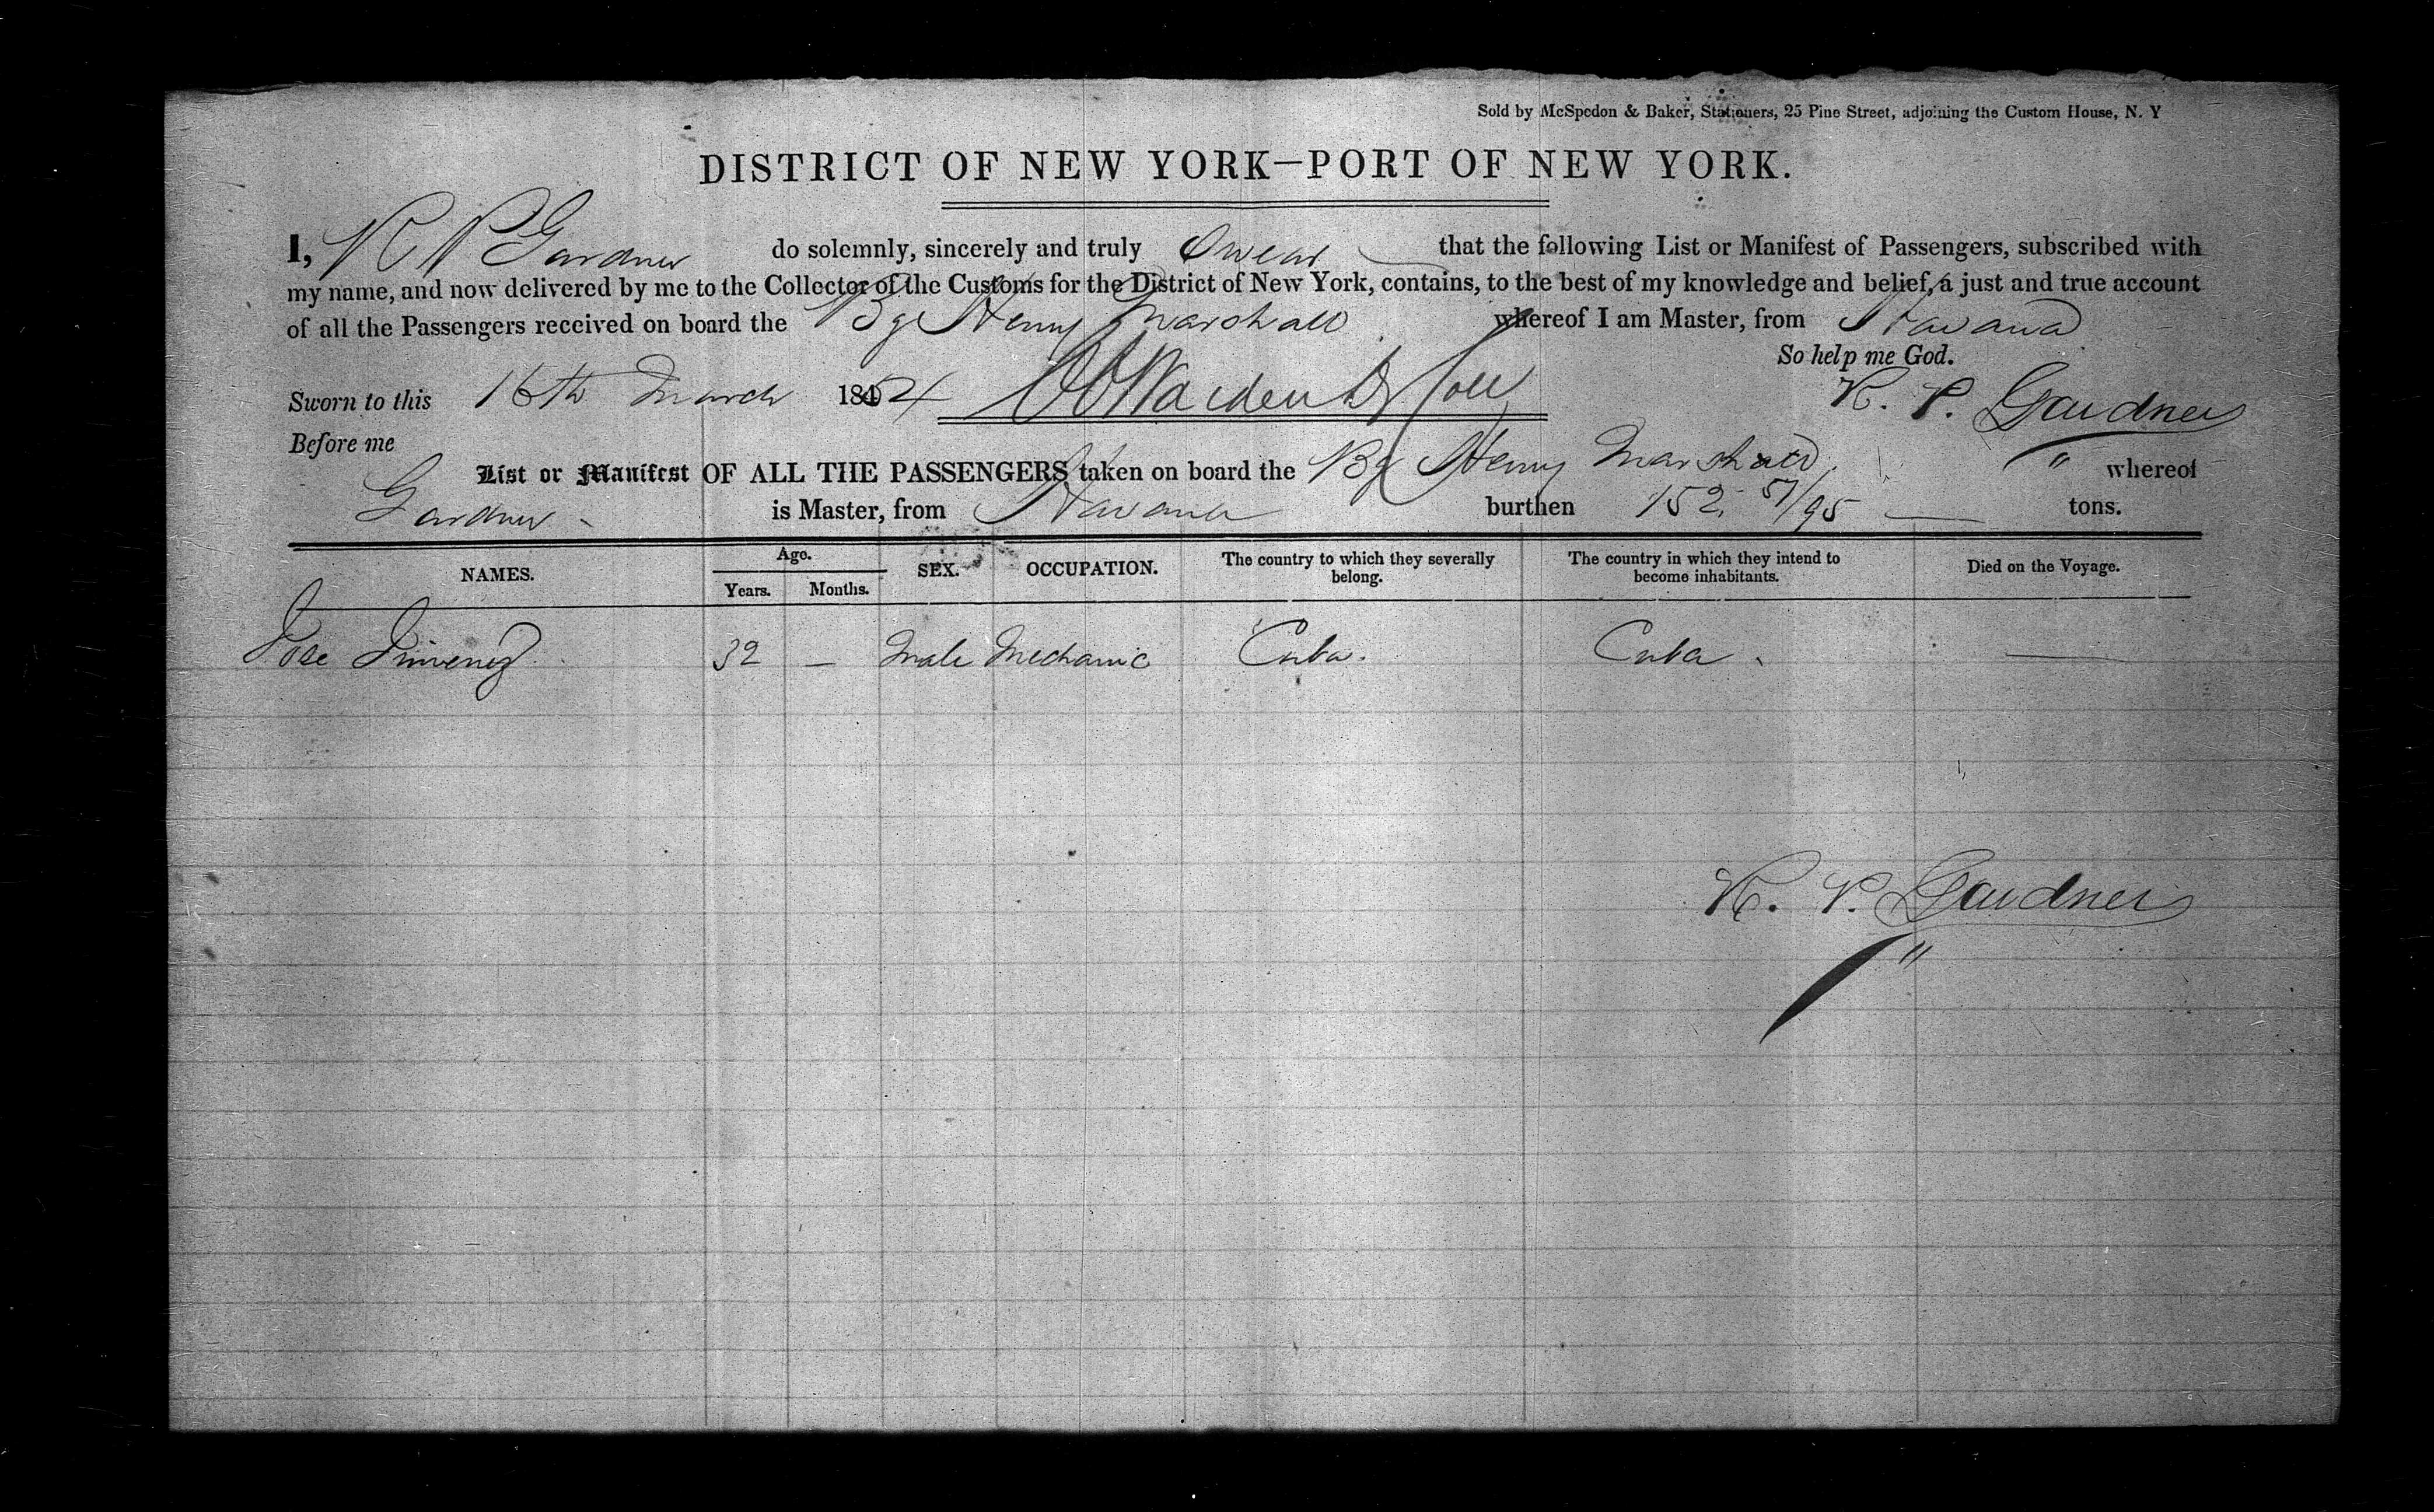 Sold by McSpedon & Baker, Stationers, 25 Pine Street, adjoining the Custom House, N. Y
DISTRICT OF NEW YORK—PORT OF NEW YORK.
I, R P Gardner do solemnly, sincerely and truly Swear that the following List or Manifest of Passengers, subscribed with
my name, and now delivered by me to the Collector of the Customs for the District of New York, contains, to the best of my knowledge and belief, a just and true account
of all the Passengers received on board the Bg Henry Marshall whereof I am Master, from Havana
So help me God.
Sworn to this 16th March 1854 R. P. Gardner
Before me
List or Manifest OF ALL THE PASSENGERS taken on board the Bg Henry Marshall whereof
Gardner is Master, from Havana burthen 152 57/95 tons.
NAMES. Age. Years. Months. SEX. OCCUPATION. The country to which they severally belong. The country in which they intend to become inhabitants. Died on the Voyage.
Jose Jimenez 32 — Male Mechanic Cuba. Cuba —
R. P. Gardner